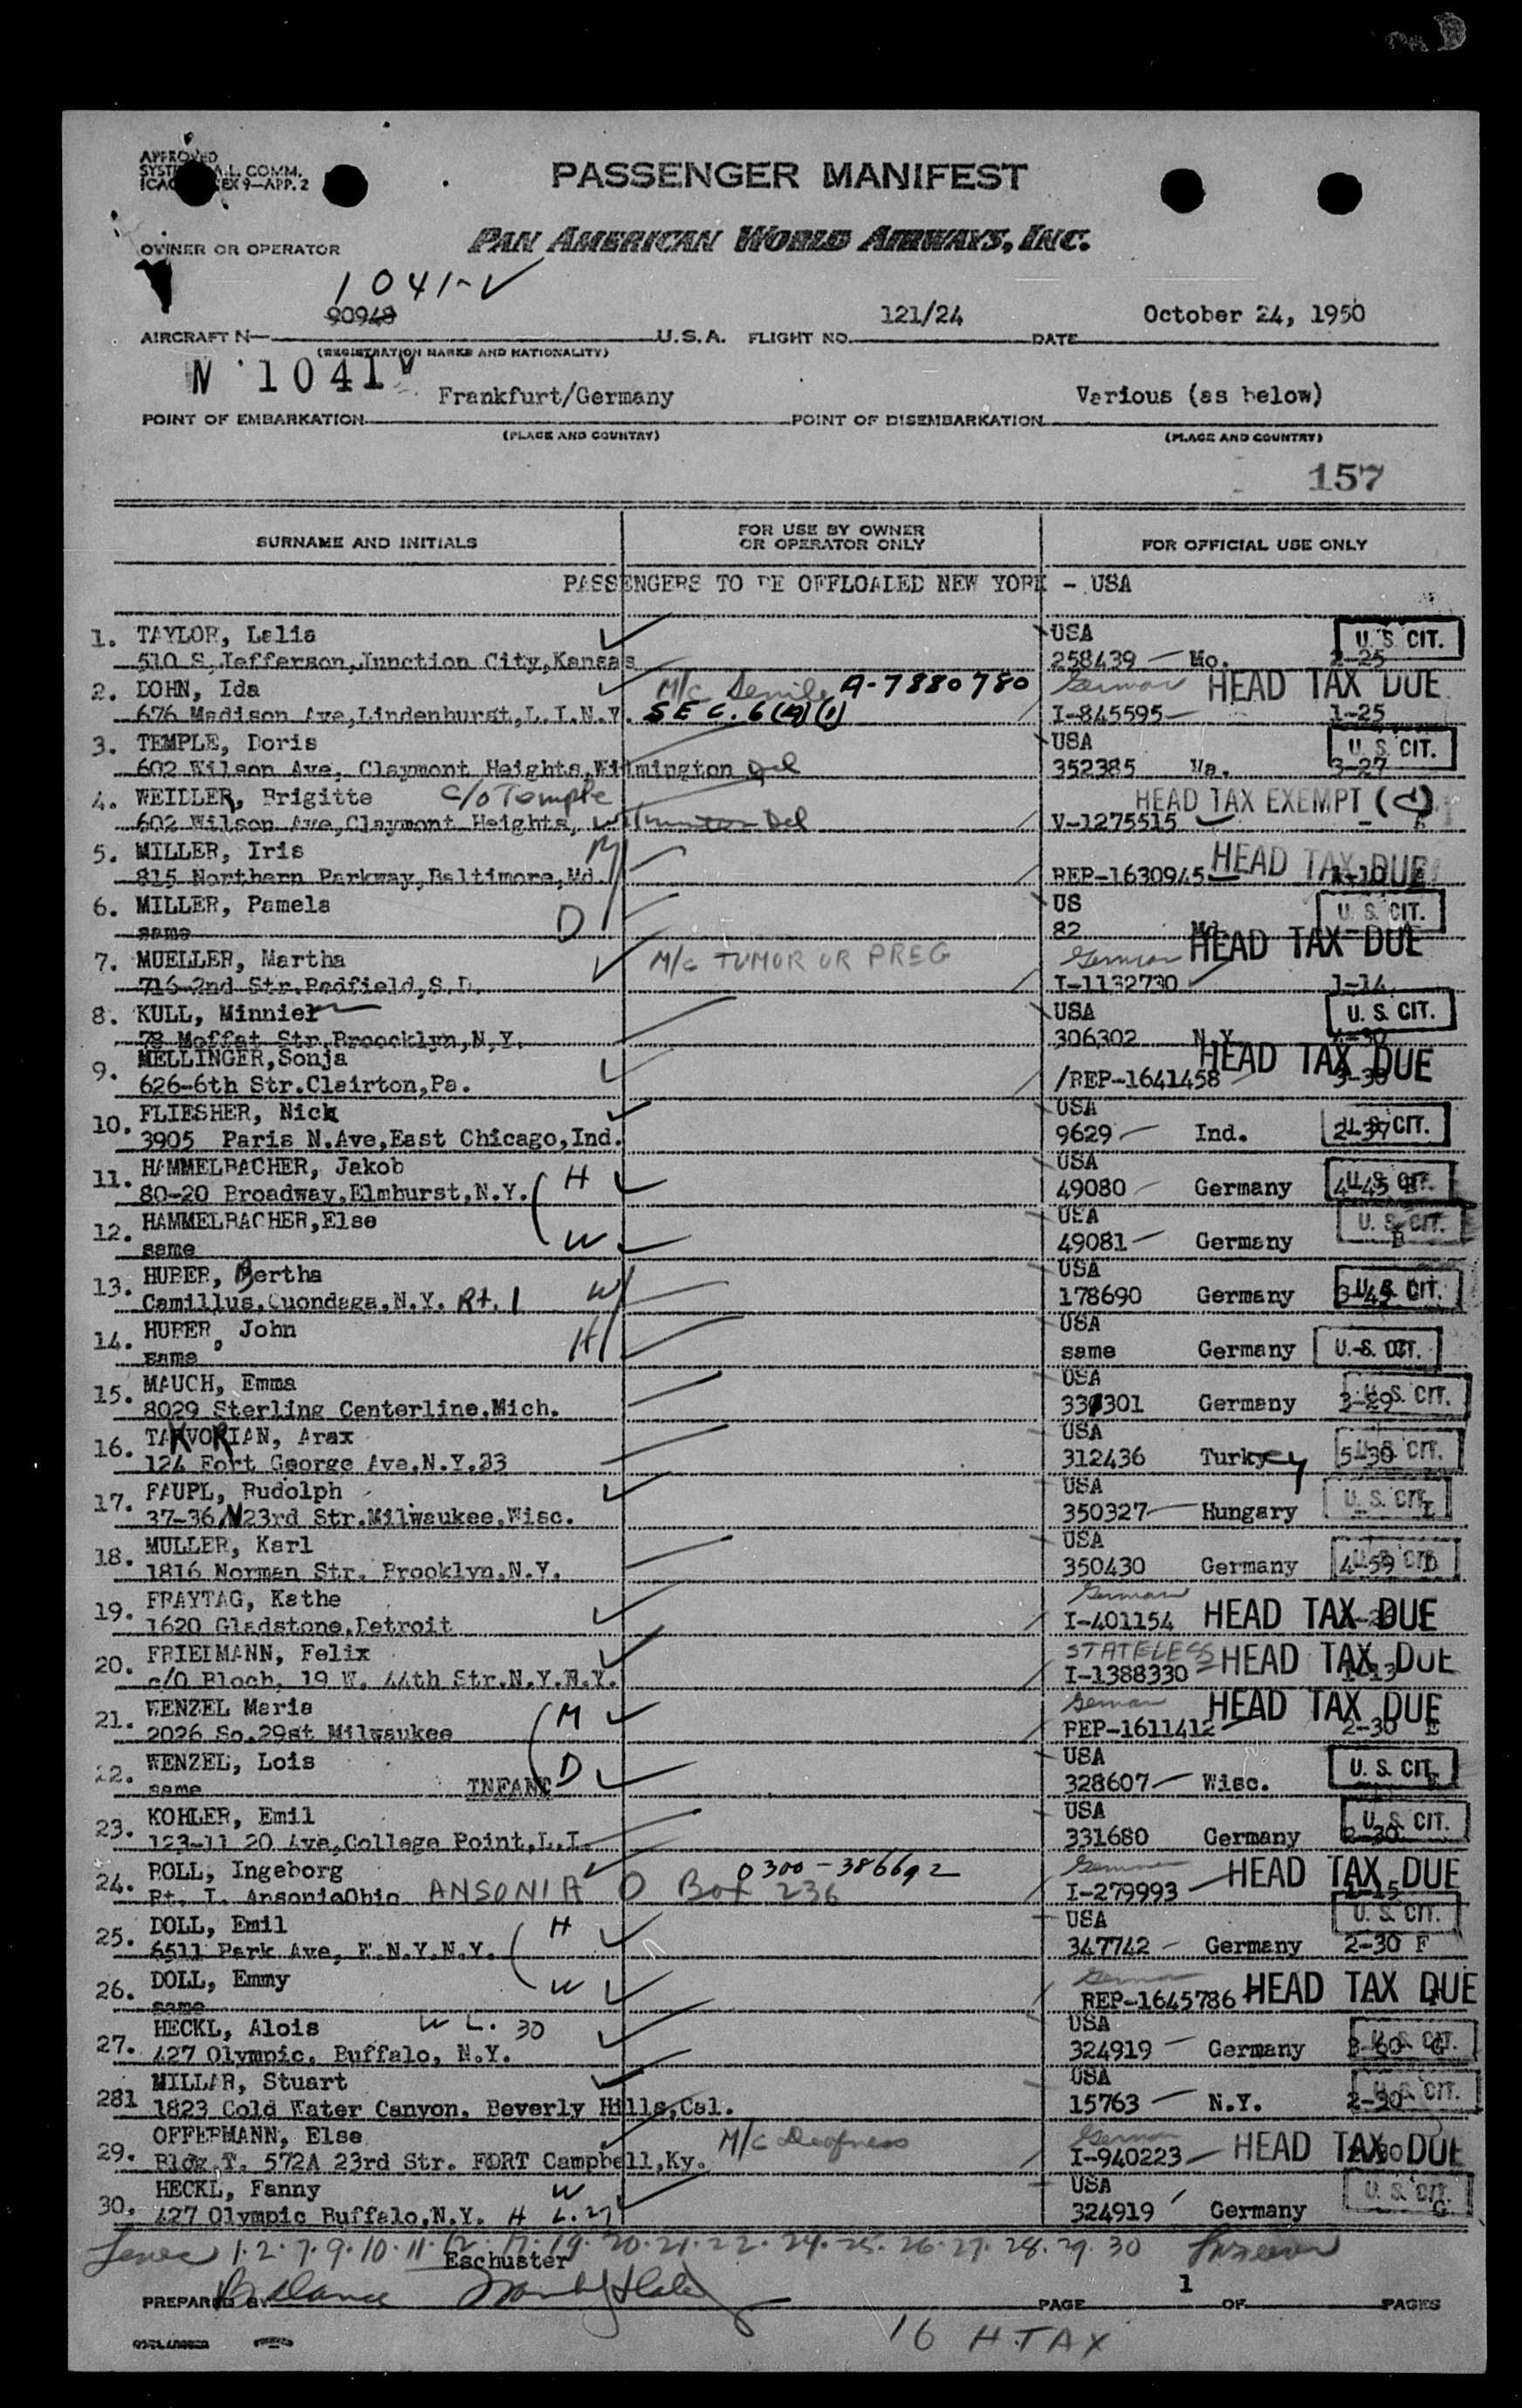 APPROVED
PASSENGER MANIFEST
OWNER OR OPERATOR
PAN AMERICAN WORLD AIRWAYS, INC.
1041-V
90948
121/24
October 24, 1950
AIRCRAFT N— U.S.A. FLIGHT NO. DATE
(REGISTRATION MARKS AND NATIONALITY)
N 1041V
Frankfurt/Germany
Various (as below)
POINT OF EMBARKATION POINT OF DISEMBARKATION
(PLACE AND COUNTRY) (PLACE AND COUNTRY)
157
SURNAME AND INITIALS FOR USE BY OWNER OR OPERATOR ONLY FOR OFFICIAL USE ONLY
PASSENGERS TO BE OFFLOADED NEW YORK - USA
1. TAYLOR, Lelia USA U. S. CIT.
510 S Jefferson,Junction City,Kansas 258439 — Mo. 2-25
2. DOHN, Ida M/c Senile A-7880780 German HEAD TAX DUE
676 Madison Ave,Lindenhurst,L.I.N.Y. SEC. 6(A)(1) I-845595 1-25
3. TEMPLE, Doris USA U. S. CIT.
602 Wilson Ave, Claymont Heights,Wilmington Del 352385 Va. 3-27
4. WEIDLER, Brigitte c/o Temple HEAD TAX EXEMPT
602 Wilson Ave,Claymont Heights, Del V-1275515
5. MILLER, Iris M HEAD TAX DUE
815 Northern Parkway,Baltimore,Md. REP-1630945 1-10
6. MILLER, Pamela D US U. S. CIT.
same 82 Md.
7. MUELLER, Martha M/c TUMOR OR PREG German HEAD TAX DUE
716-2nd Str.Redfield,S.D. I-1132730 1-14
8. KULL, Minnie USA U. S. CIT.
78 Moffat Str.Broocklyn,N.Y. 306302 N.Y. 4-30
9. MELLINGER,Sonja HEAD TAX DUE
626-6th Str.Clairton,Pa. /REP-1641458 3-30
10. FLIESHER, Nick USA U. S. CIT.
3905 Paris N.Ave,East Chicago,Ind. 9629 — Ind. 2-37
11. HAMMELBACHER, Jakob H USA U. S. CIT.
80-20 Broadway,Elmhurst,N.Y. 49080 — Germany 4-45
12. HAMMELBACHER,Else USA U. S. CIT.
same W 49081 — Germany
13. HUBER, Bertha W USA U. S. CIT.
Camillus,Quondaga,N.Y. Rt. 1 178690 Germany
14. HUBER, John H USA
same same Germany U. S. CIT.
15. MAUCH, Emma USA U. S. CIT.
8029 Sterling Centerline,Mich. 331301 Germany 3-29
16. TAKVORIAN, Arax USA U. S. CIT.
124 Fort George Ave,N.Y.33 312436 Turkey 5-30
17. FAUPL, Rudolph USA U. S. CIT.
37-36 N 23rd Str.Milwaukee,Wisc. 350327 — Hungary
18. MULLER, Karl USA U. S. CIT.
1816 Norman Str. Brooklyn,N.Y. 350430 Germany 4-59 D
19. FRAYTAG, Kathe German
1620 Gladstone,Detroit I-401154 HEAD TAX DUE
20. FRIEDMANN, Felix STATELESS HEAD TAX DUE
c/O Bloch, 19 W. 44th Str.N.Y.N.Y. I-1388330 1-13
21. WENZEL Maria M German HEAD TAX DUE
2026 So.29st Milwaukee REP-1611412 2-30 E
22. WENZEL, Lois D USA U. S. CIT.
same INFANT 328607 — Wisc.
23. KOHLER, Emil USA U. S. CIT.
123-11 20 Ave,College Point,L.I. 331680 Germany 2-30
24. ROLL, Ingeborg 0300-386692 German HEAD TAX DUE
Rt. I. AnsoniaOhio ANSONIA O Box 236 I-279993 1-15
25. DOLL, Emil H USA U. S. CIT.
6511 Park Ave, E.N.Y.N.Y. 347742 — Germany 2-30 F
26. DOLL, Emmy W German HEAD TAX DUE
same REP-1645786
27. HECKL, Alois W L. 30 USA U. S. CIT.
427 Olympic, Buffalo, N.Y. 324919 — Germany 3-60 G
281 MILLAR, Stuart USA U. S. CIT.
1823 Cold Water Canyon, Beverly Hills,Cal. 15763 — N.Y. 2-30
29. OFFERMANN, Else M/c Deafness German HEAD TAX DUE
Bldg.T. 572A 23rd Str. FORT Campbell,Ky. I-940223
30. HECKL, Fanny W USA U. S. CIT.
427 Olympic Buffalo,N.Y. H L.27 324919 Germany G
1·2·7·9·10·11·12·17·19·20·21·22·24·25·26·27·28·29·30
Eschuster
1
PREPARED BY PAGE OF PAGES
16 H.TAX